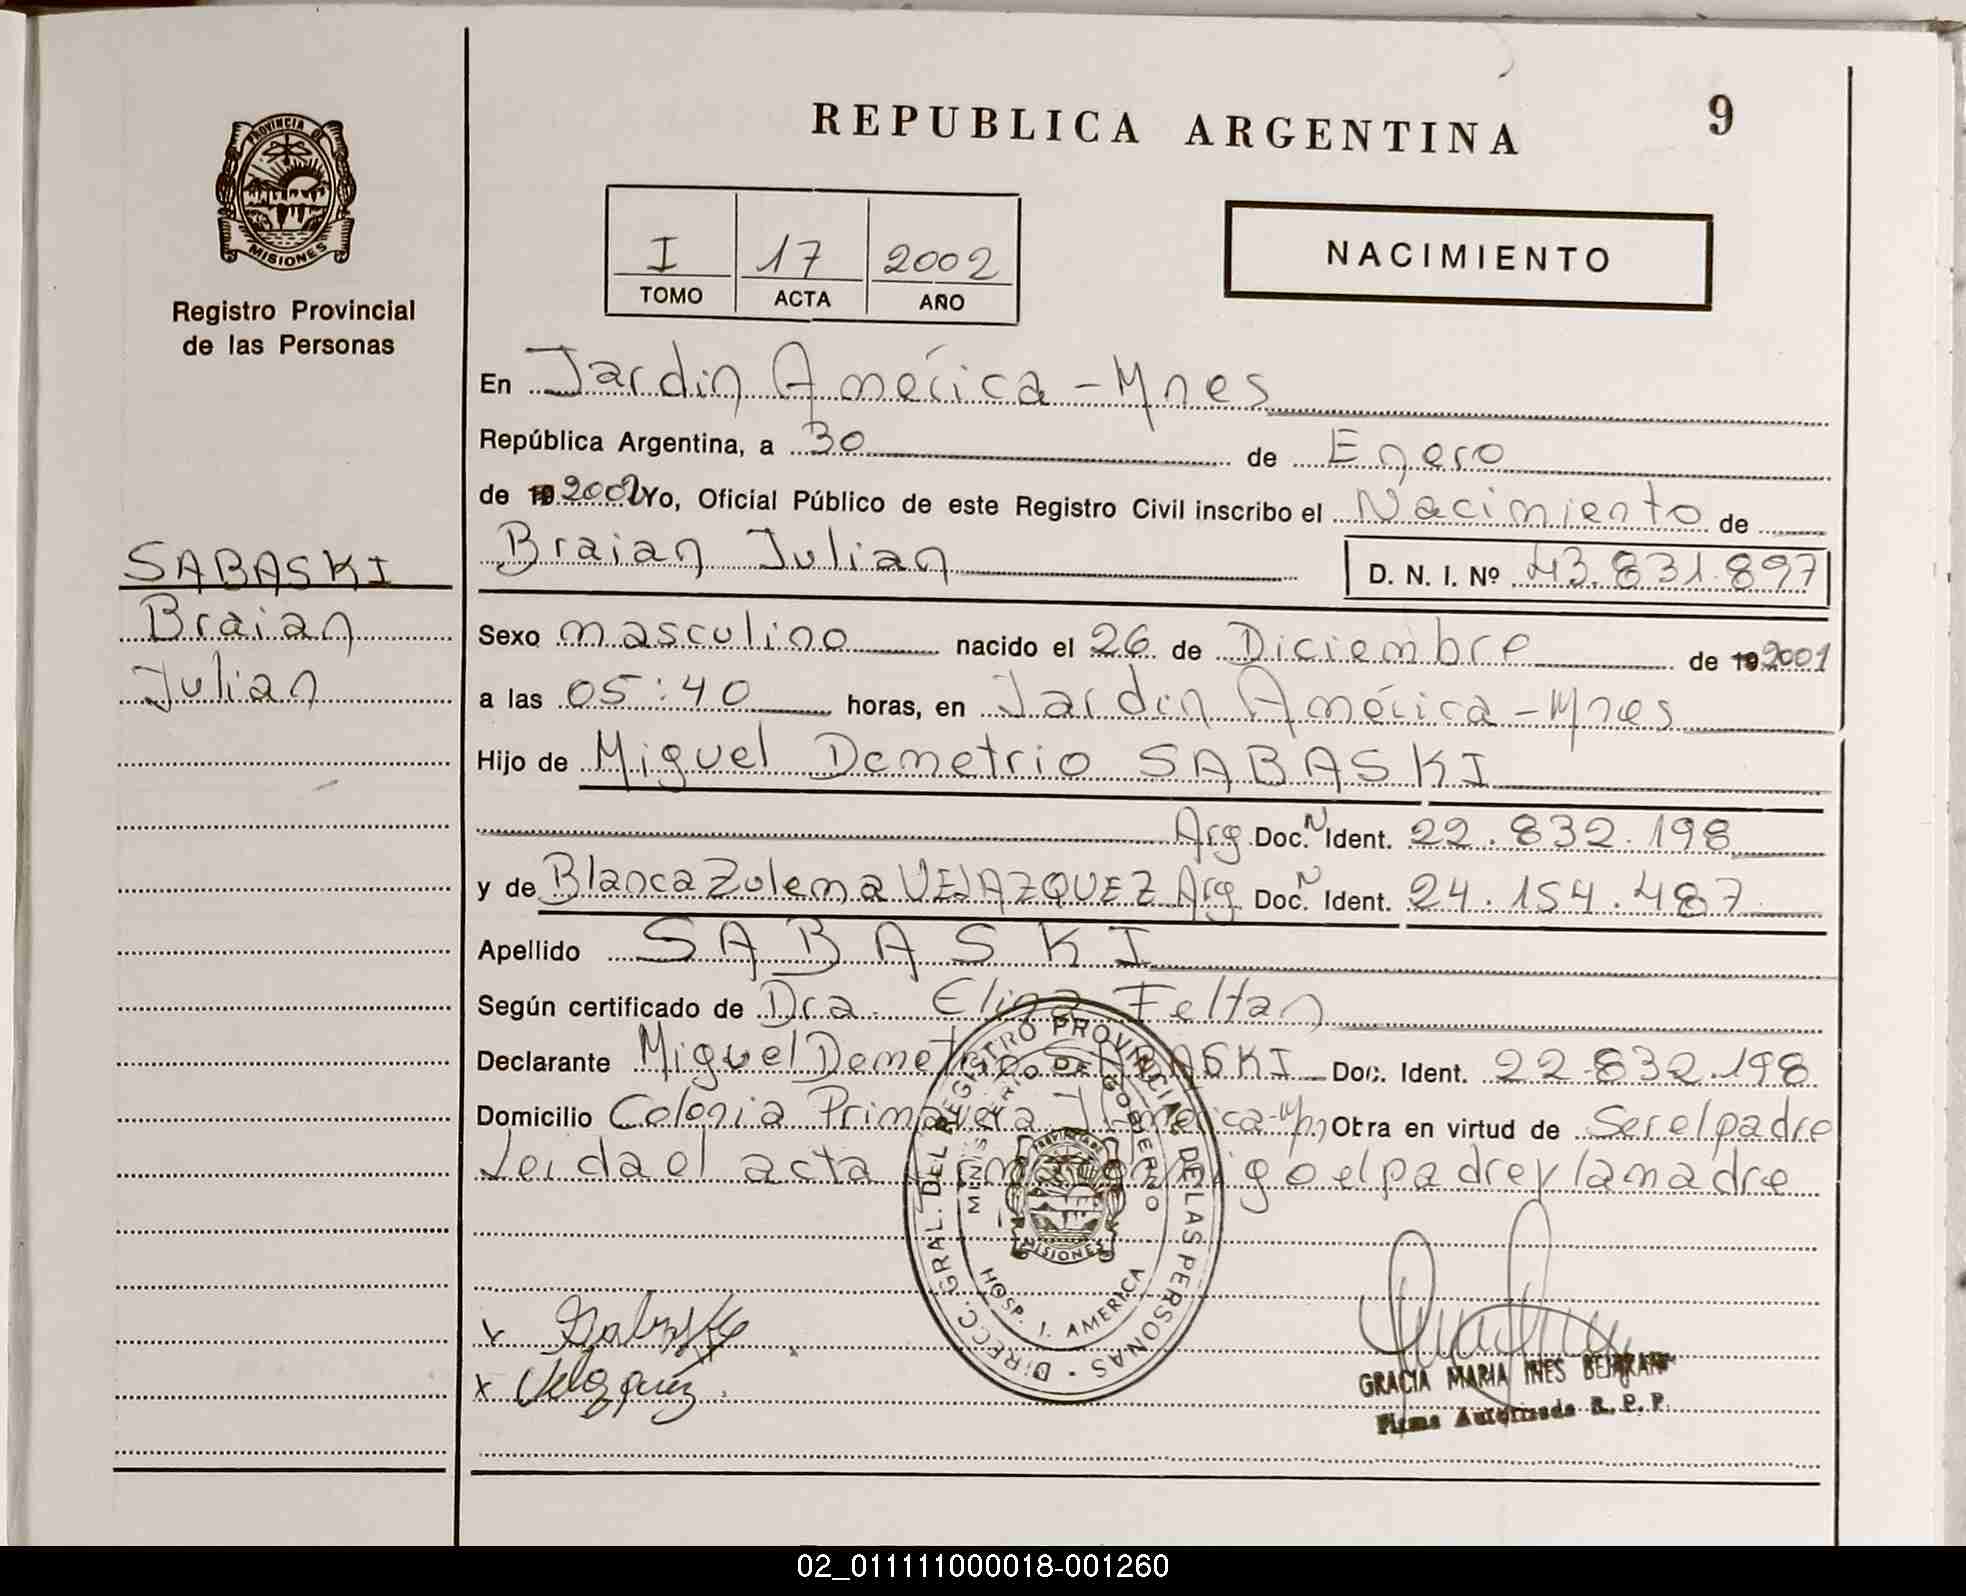 REPUBLICA ARGENTINA
9
PROVINCIA DE
MISIONES
Registro Provincial
de las Personas
I 17 2002
TOMO ACTA AÑO
NACIMIENTO
En Jardin América - Mnes
República Argentina, a 30 de Enero
de 19 2002 Yo, Oficial Público de este Registro Civil inscribo el Nacimiento de
Braian Julian D. N. I. Nº 43.831.897
SABASKI
Braian
Julian
Sexo masculino nacido el 26 de Diciembre de 19 2001
a las 05:40 horas, en Jardin América - Mnes
Hijo de Miguel Demetrio SABASKI
Arg. Doc. N Ident. 22.832.198
y de Blanca Zulema VELAZQUEZ Arg. Doc. N Ident. 24.154.487
Apellido SABASKI
Según certificado de Dra. Elina
Declarante Miguel Demetrio SABASKI Doc. Ident. 22.832.198
Domicilio Colonia Primavera J. América Obra en virtud de Ser el padre
Leida el acta el padre y la madre
DIRECC. GRAL. DEL REGISTRO PROVINCIAL DE LAS PERSONAS
MINISTERIO DE GOBIERNO
PROVINCIA DE
MISIONES
HOSP. J. AMERICA
x Sabaski
x Velazquez
GRACIA MARIA INES
Firma Autorizada R. P. P.
02_011111000018-001260